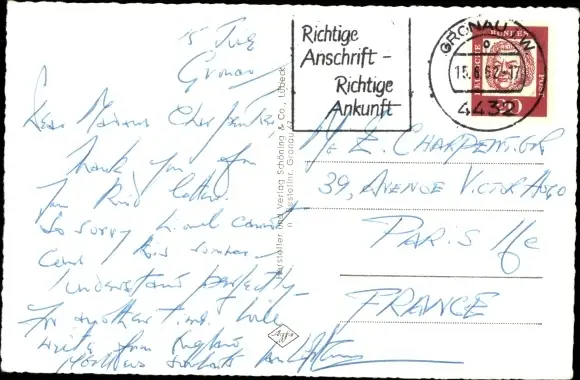 15 
Gronau
Dear Madame Charpentier
Thank you for
your kind letter.
So sorry you cannot
come this summer -
I understand perfectly -
For another time. I will
write from England
Richtige
Anschrift -
Richtige
Ankunft
GRONAU W
15.6.62-17
4432
BUNDES
POST
20
Hersteller und Verlag Schöning & Co., Lübeck
Gronau
E. CHARPENTIER
39, AVENUE VICTOR HUGO
PARIS 16e
FRANCE
Agfa